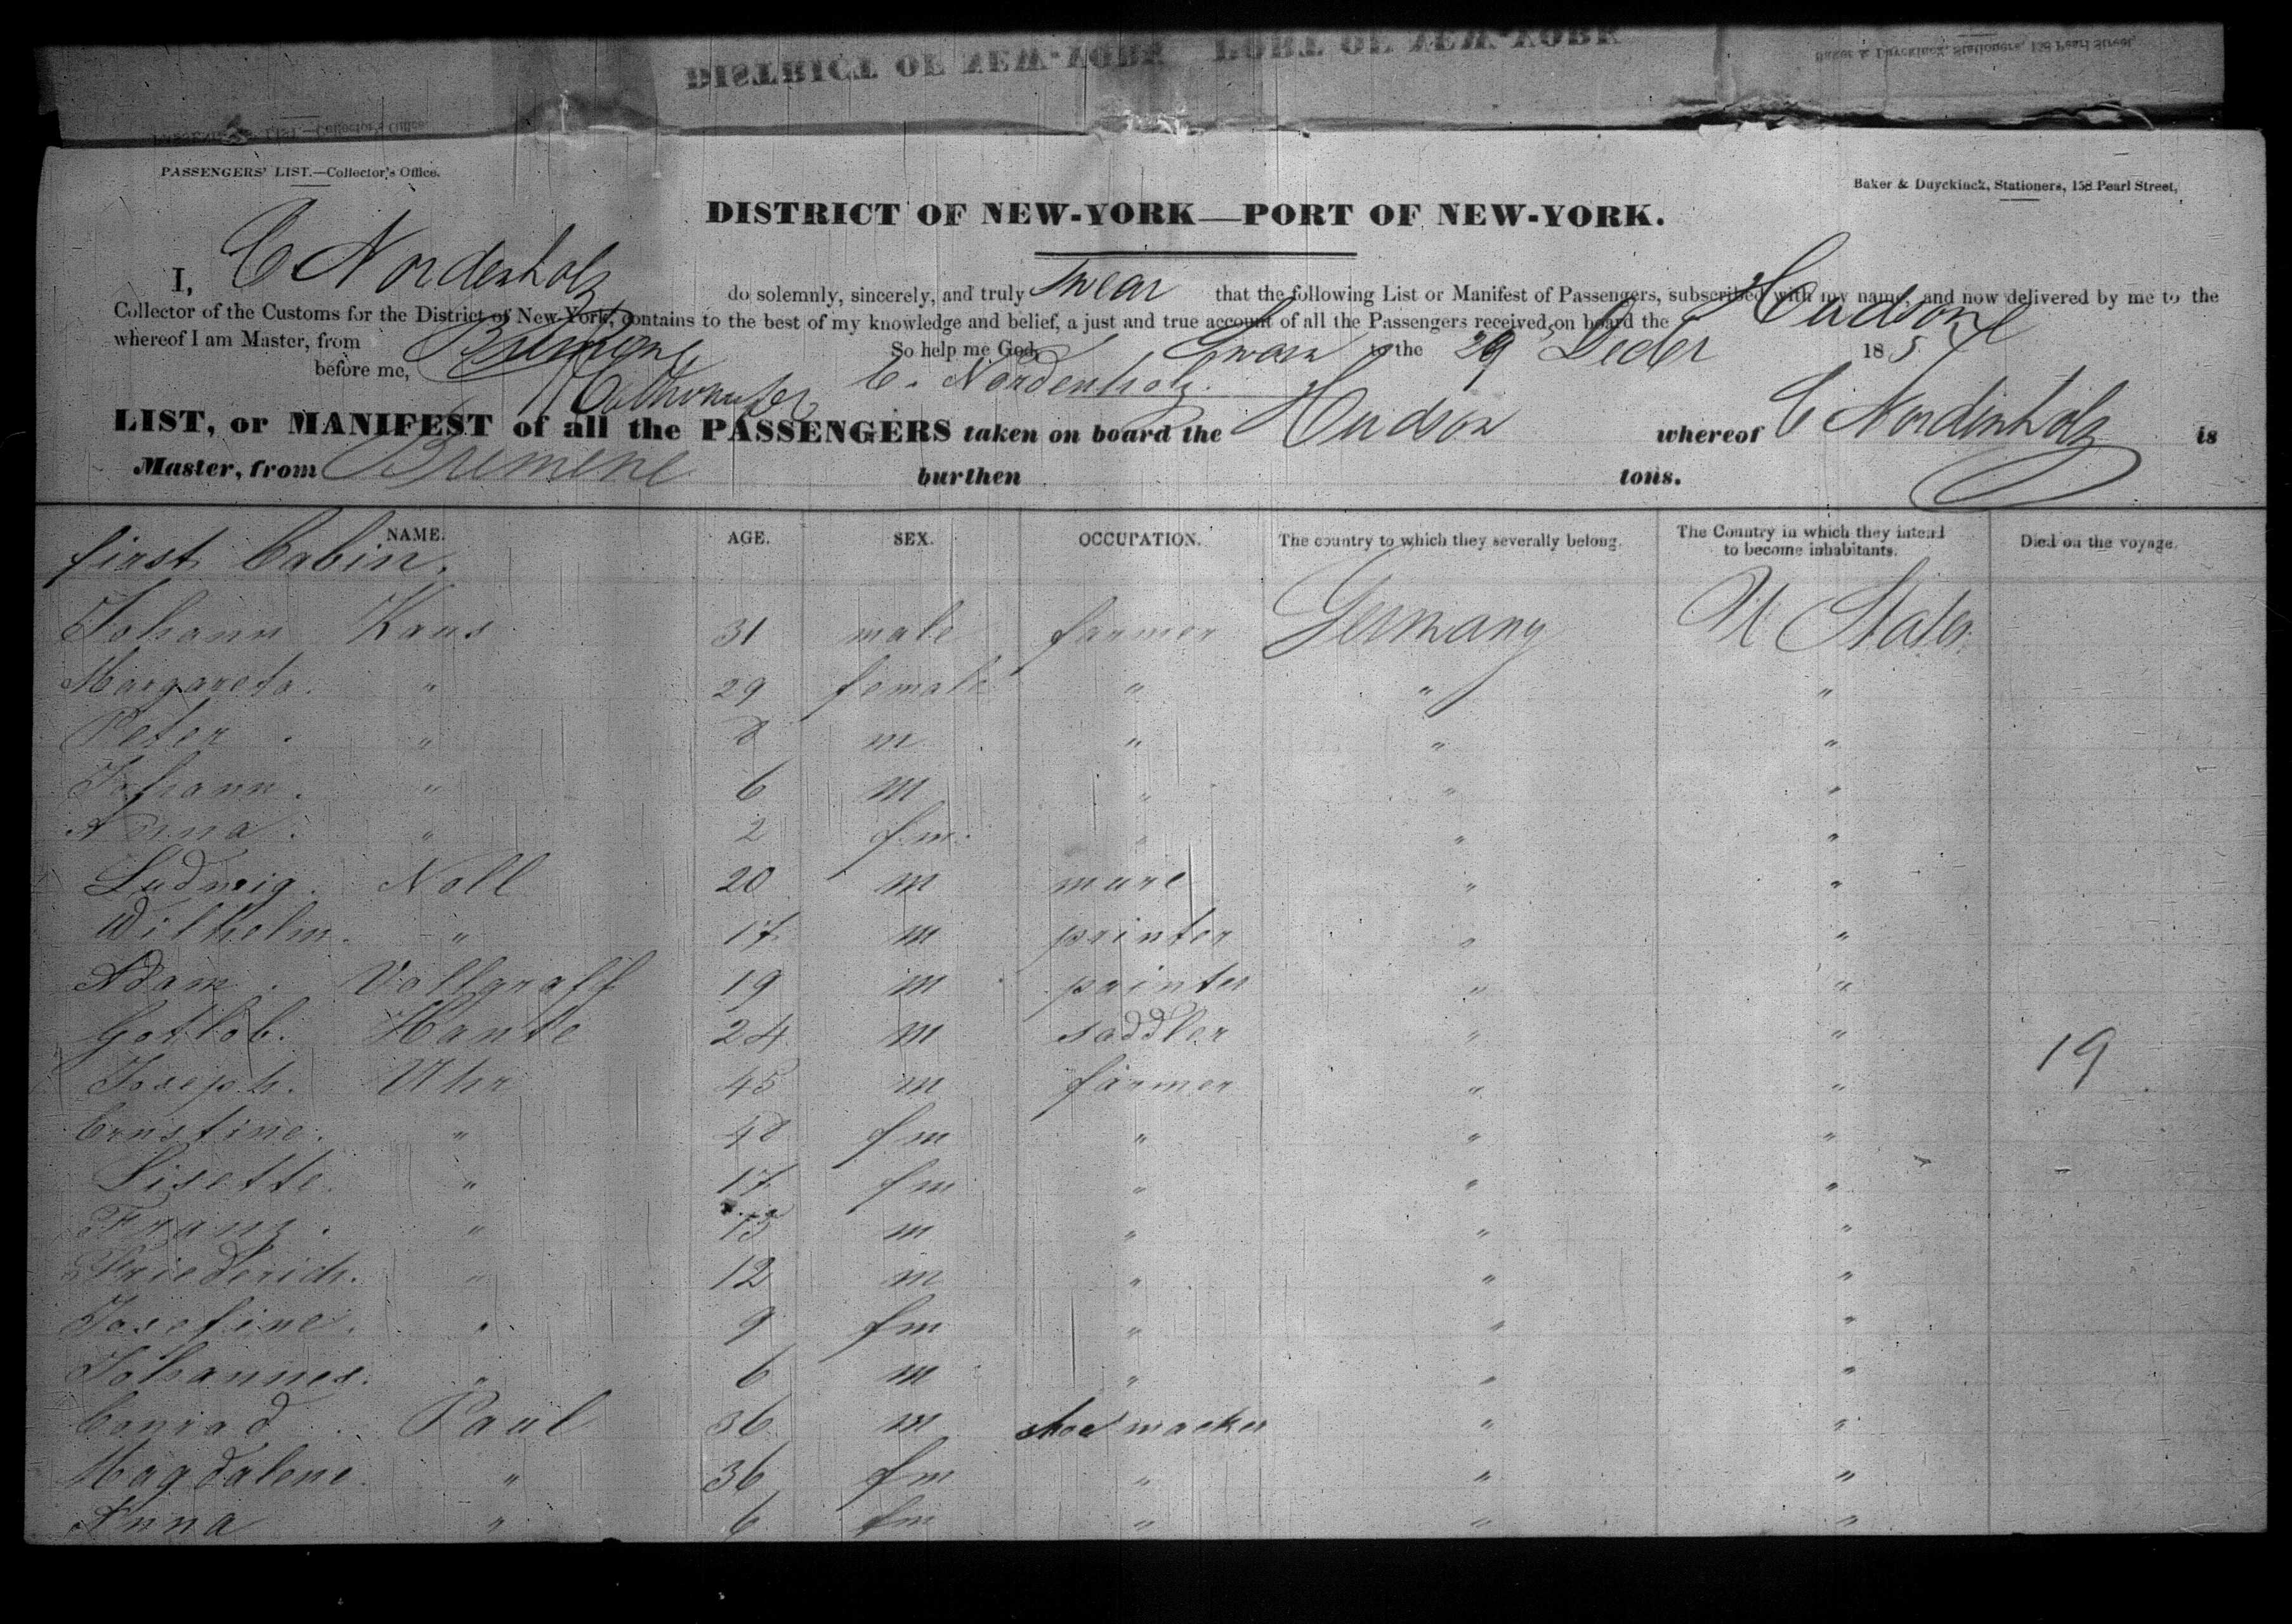 DISTRICT OF NEW-YORK PORT OF NEW-YORK
Baker & Duyckinck, Stationers, 158 Pearl Street,
PASSENGERS' LIST.—Collector's Office.
PASSENGERS' LIST.—Collector's Office.
Baker & Duyckinck, Stationers, 158 Pearl Street,
DISTRICT OF NEW-YORK—PORT OF NEW-YORK.
I, C Nordenholz do solemnly, sincerely, and truly swear that the following List or Manifest of Passengers, subscribed with my name, and now delivered by me to the
Collector of the Customs for the District of New-York, contains to the best of my knowledge and belief, a just and true account of all the Passengers received on board the Hudson
whereof I am Master, from Bremene So help me God. Sworn to the 29 Decbr 185
before me, C. Nordenholz
LIST, or MANIFEST of all the PASSENGERS taken on board the Hudson whereof C Nordenholz is
Master, from Bremene burthen tons.
NAME. AGE. SEX. OCCUPATION. The country to which they severally belong. The Country in which they intend to become inhabitants. Died on the voyage.
first Cabin.
Johann Kaus 31 male farmer Germany U States
Margareta. " 29 female " " "
Peter . " 8 m " " "
Johann . " 6 m " " "
Anna . " 2 fm. " " "
Ludwig . Noll 20 m " "
Wilhelm. " 17 m printer " "
Adam . Vollgraff 19 m painter " "
Gottlob. Hante 24 m saddler " "
19
Joseph. Uhr 45 m farmer " "
Ernstine. " 48 fm " " "
Lisette. " 17 fm " " "
Franz . " 15 m " " "
Friederich. " 12 m " " "
Josefine . " 9 fm " " "
Johannes. " 6 m " " "
Conrad . Paul 36 m shoe macker " "
Magdalene. " 36 fm " " "
Anna " 6 fm " " "